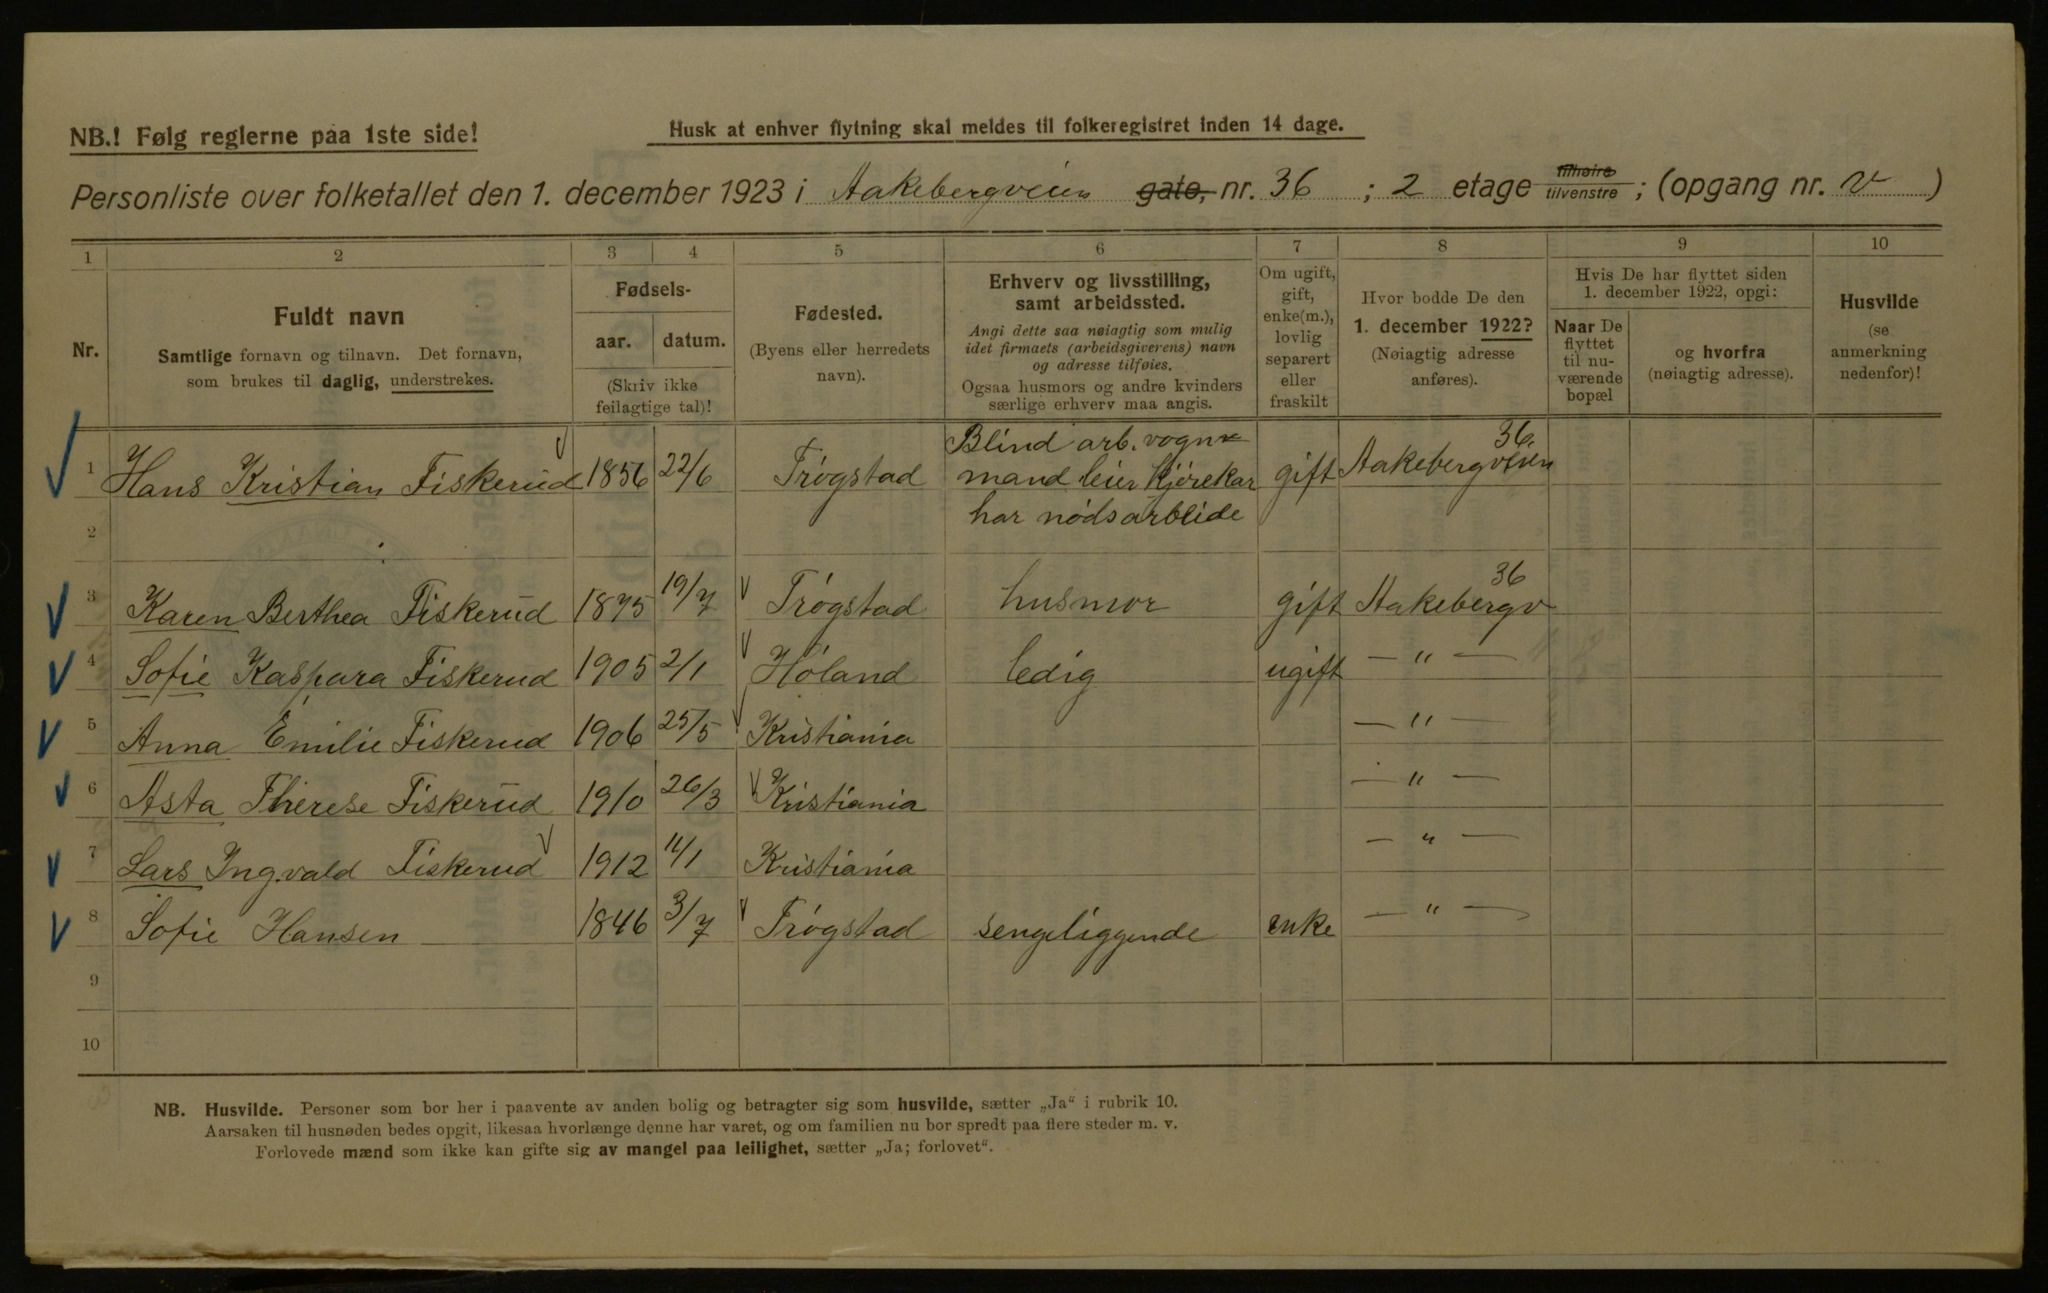 NB.! Følg reglerne paa 1ste side!
Husk at enhver flytning skal meldes til folkeregistret inden 14 dage.
Personliste over folketallet den 1. december 1923 i Aakebergveien gate, nr. 36 ; 2 etage tilhøire tilvenstre ; (opgang nr. v )
1 2 3 4 5 6 7 8 9 10
Nr.
Fuldt navn
Samtlige fornavn og tilnavn. Det fornavn,
som brukes til daglig, understrekes.
Fødsels-
aar. datum.
(Skriv ikke
feilagtige tal)!
Fødested.
(Byens eller herredets
navn).
Erhverv og livsstilling,
samt arbeidssted.
Angi dette saa nøiagtig som mulig
idet firmaets (arbeidsgiverens) navn
og adresse tilføies.
Ogsaa husmors og andre kvinders
særlige erhverv maa angis.
Om ugift,
gift,
enke(m.),
lovlig
separert
eller
fraskilt
Hvor bodde De den
1. december 1922?
(Nøiagtig adresse
anføres).
Hvis De har flyttet siden
1. december 1922, opgi:
Naar De
flyttet
til nu-
værende
bopæl
og hvorfra
(nøiagtig adresse).
Husvilde
(se
anmerkning
nedenfor)!
1 Hans Kristian Fiskerud 1856 22/6 Trøgstad Blind arb. vogn
mand leier kjørekar
har nødsarbeide gift Aakebergveien 36.
2
3 Karen Berthea Fiskerud 1875 19/7 Trøgstad husmor gift Aakebergv 36
4 Sofie Kaspara Fiskerud 1905 2/1 Høland ledig ugift — " —
5 Anna Emilie Fiskerud 1906 25/5 Kristiania — " —
6 Asta Therese Fiskerud 1910 26/3 Kristiania — " —
7 Lars Ingvald Fiskerud 1912 Kristiania — " —
8 Sofie Hansen 1846 3/7 Trøgstad sengeliggende enke — " —
9
10
NB. Husvilde. Personer som bor her i paavente av anden bolig og betragter sig som husvilde, sætter „Ja“ i rubrik 10.
Aarsaken til husnøden bedes opgit, likesaa hvorlænge denne har varet, og om familien nu bor spredt paa flere steder m. v.
Forlovede mænd som ikke kan gifte sig av mangel paa leilighet, sætter „Ja; forlovet“.